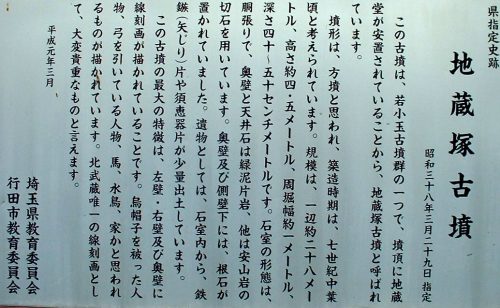 県指定史跡
地蔵塚古墳
昭和三十八年三月二十九日 指定
この古墳は、若小玉古墳群の一つで、墳頂に地蔵
堂が安置されていることから、地蔵塚古墳と呼ばれ
ています。
墳形は、方墳と思われ、築造時期は、七世紀中葉
頃と考えられています。規模は、一辺約二十八メー
トル、高さ約四・五メートル、周堀幅約一メートル、
深さ四十〜五十センチメートルです。石室の形態は、
胴張りで、奥壁と天井石は緑泥片岩、他は安山岩の
切石を用いています。奥壁及び側壁下には、根石が
置かれていました。遺物としては、石室内から、鉄
鏃(矢じり)片や須恵器片が少量出土しています。
この古墳の最大の特徴は、左壁・右壁及び奥壁に
線刻画が描かれていることです。烏帽子を被った人
物、弓を引いている人物、馬、水鳥、家かと思われ
るものが描かれています。北武蔵唯一の線刻画とし
て、大変貴重なものと言えます。
平成元年三月
埼玉県教育委員会
行田市教育委員会